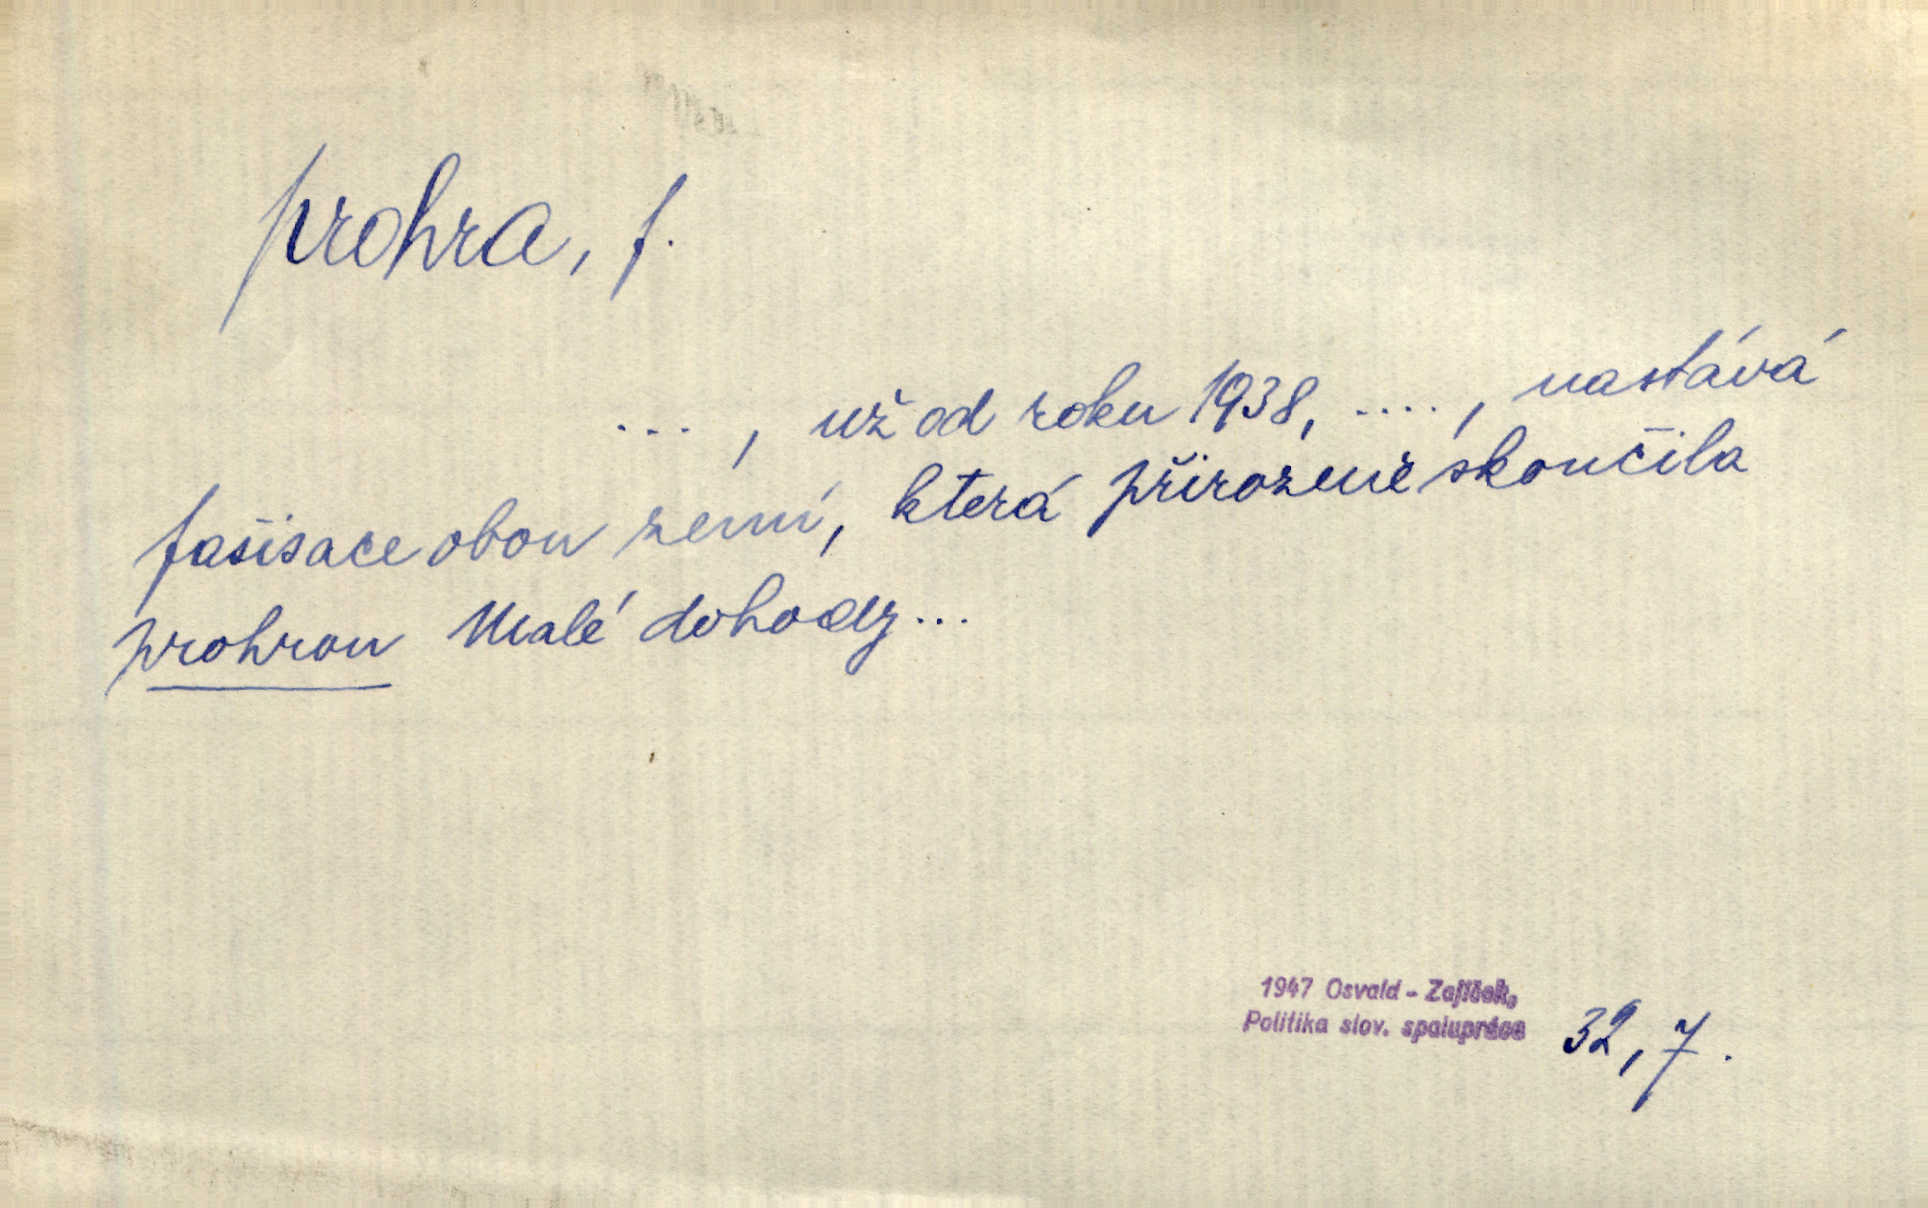 prohra, f.
... , už od roku 1938, .... , nastává
fašisace obou zemí, která přirozeně skončila
prohrou Malé dohody...
1947 Osvald - Zajíček,
Politika slov. spolupráce 32, 7.